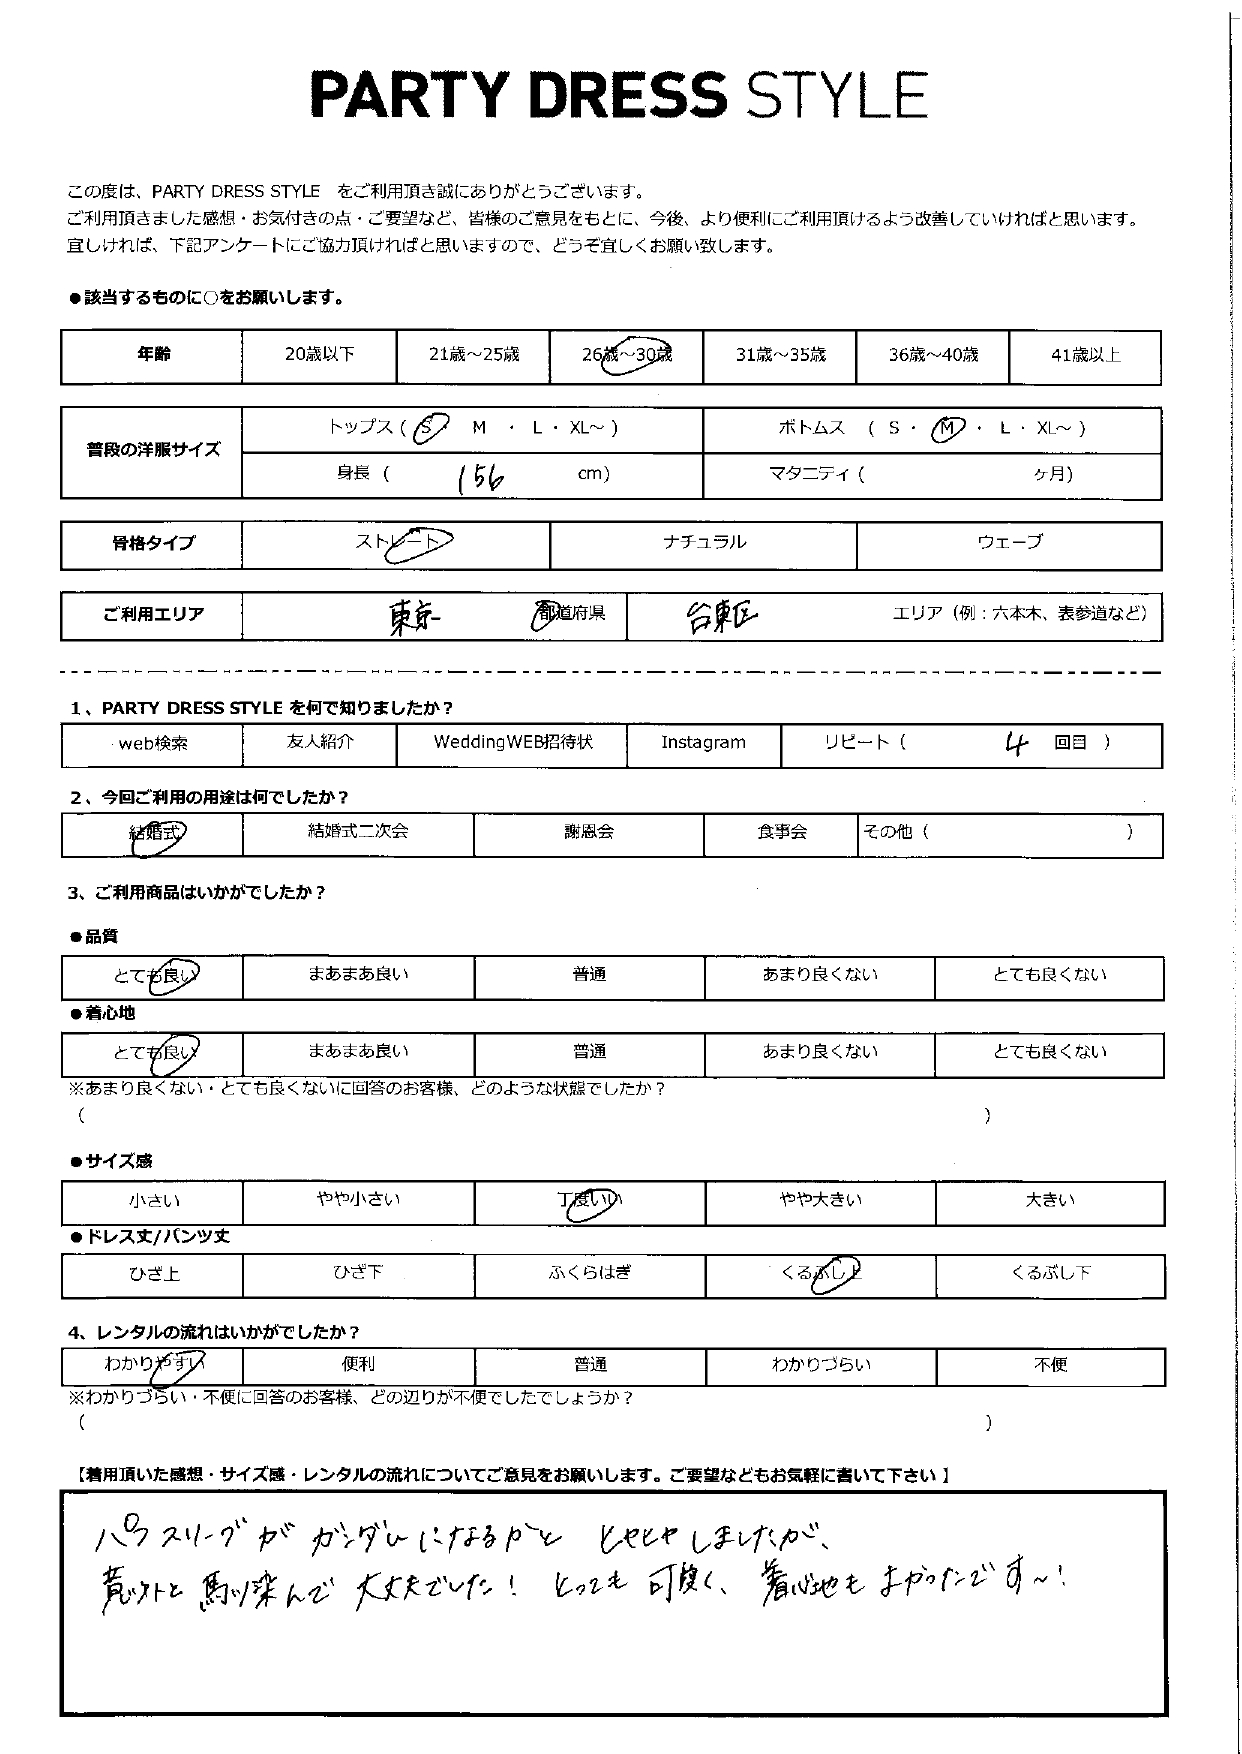 PARTY DRESS STYLE
この度は、PARTY DRESS STYLE をご利用頂き誠にありがとうございます。
ご利用頂きました感想・お気付きの点・ご要望など、皆様のご意見をもとに、今後、より便利にご利用頂けるよう改善していければと思います。
宜しければ、下記アンケートにご協力頂ければと思いますので、どうぞ宜しくお願い致します。
●該当するものに○をお願いします。
年齢 20歳以下 21歳～25歳 26歳～30歳 31歳～35歳 36歳～40歳 41歳以上
普段の洋服サイズ
トップス ( S M ・ L ・ XL～ ) ボトムス ( S ・ M ・ L ・ XL～ )
身長 ( 156 cm) マタニティ ( ヶ月)
骨格タイプ ストレート ナチュラル ウェーブ
ご利用エリア 東京 都道府県 台東区 エリア（例：六本木、表参道など）
1、PARTY DRESS STYLE を何で知りましたか？
web検索 友人紹介 WeddingWEB招待状 Instagram リピート ( 4 回目 )
2、今回ご利用の用途は何でしたか？
結婚式 結婚式二次会 謝恩会 食事会 その他 ( )
3、ご利用商品はいかがでしたか？
●品質
とても良い まあまあ良い 普通 あまり良くない とても良くない
●着心地
とても良い まあまあ良い 普通 あまり良くない とても良くない
※あまり良くない・とても良くないに回答のお客様、どのような状態でしたか？
( )
●サイズ感
小さい やや小さい 丁度いい やや大きい 大きい
●ドレス丈/パンツ丈
ひざ上 ひざ下 ふくらはぎ くるぶし上 くるぶし下
4、レンタルの流れはいかがでしたか？
わかりやすい 便利 普通 わかりづらい 不便
※わかりづらい・不便に回答のお客様、どの辺りが不便でしたでしょうか？
( )
【着用頂いた感想・サイズ感・レンタルの流れについてご意見をお願いします。ご要望などもお気軽に書いて下さい】
パフスリーブが ガンダムになるかと ヒヤヒヤしましたが、
意外と 馴染んで 大丈夫でした！ とっても 可愛く、 着心地も よかったです～！